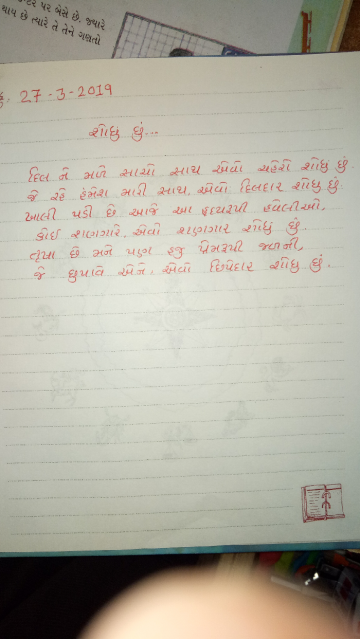 પર બેસે છે. જ્યારે
થાય છે ત્યારે તે તેને ગણતો
27-3-2019
શોધુ છું...
દિલ ને મળે સાચો સાથ એવો ચહેરો શોધુ છું.
જે રહે હંમેશા મારી સાથ, એવો દિલદાર શોધુ છું.
ખાલી પડી છે આજે આ હ્રદયરૂપી હવેલીઓ,
કોઈ શણગારે, એવો શણગાર શોધુ છું.
તૃષા છે મને પણ હજુ પ્રેમરૂપી જળની,
જે છુપાવે એને, એવો છિપેદાર શોધુ છું.